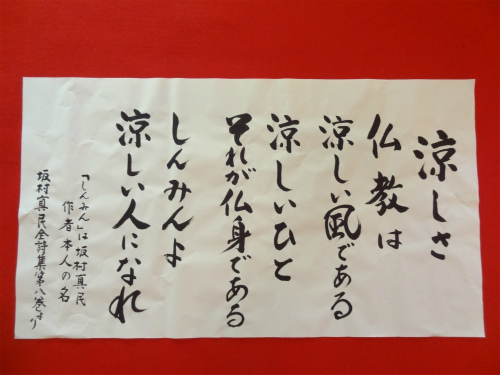 涼しさ
仏教は
涼しい風である
涼しいひと
それが仏身である
しんみんよ
涼しい人になれ
「しんみん」は坂村真民
作者本人の名
坂村真民全詩集第八巻より